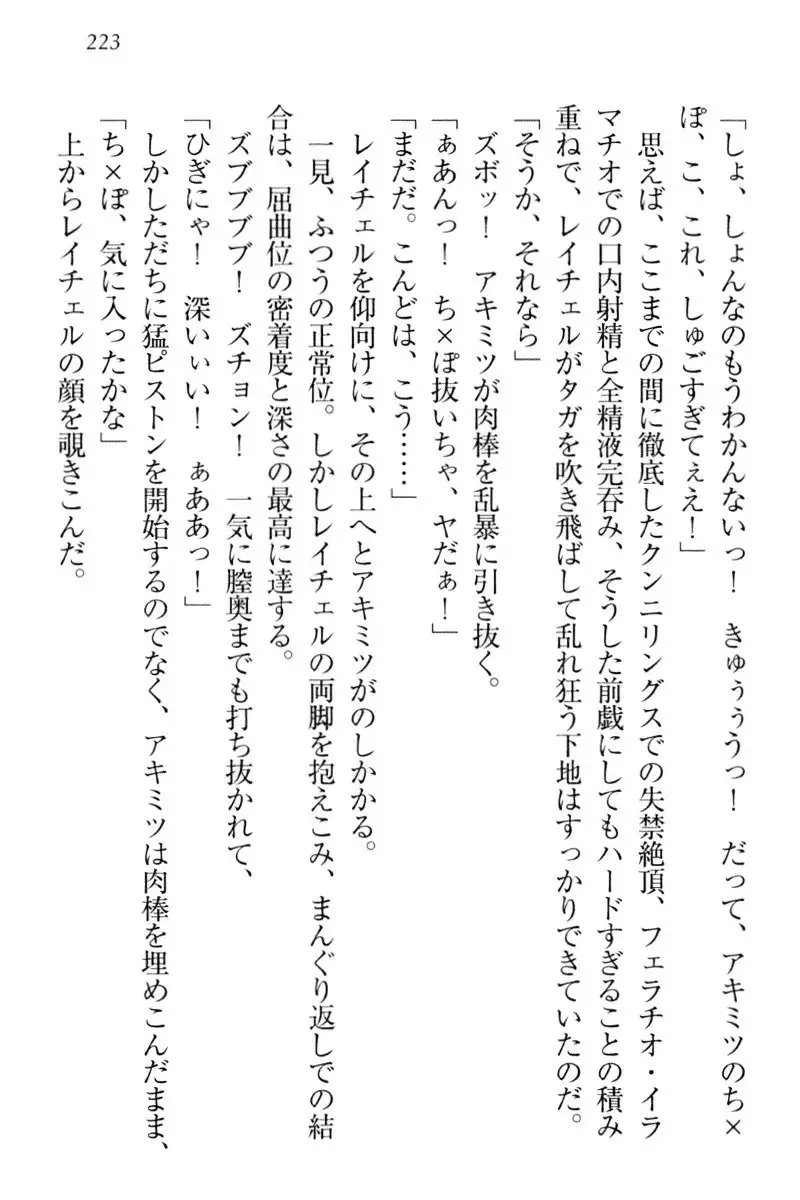 223
「しょ、しょんなのもうわかんないっ！　きゅぅぅうっ！　だって、アキミツのち×
ぽ、こ、これ、しゅごすぎてぇえ！」
思えば、ここまでの間に徹底したクンニリングスでの失禁絶頂、フェラチオ・イラ
マチオでの口内射精と全精液完呑み、そうした前戯にしてもハードすぎることの積み
重ねで、レイチェルがタガを吹き飛ばして乱れ狂う下地はすっかりできていたのだ。
「そうか、それなら」
ズボッ！　アキミツが肉棒を乱暴に引き抜く。
「ぁあんっ！　ち×ぽ抜いちゃ、ヤだぁ！」
「まだだ。こんどは、こう……」
レイチェルを仰向けに、その上へとアキミツがのしかかる。
一見、ふつうの正常位。しかしレイチェルの両脚を抱えこみ、まんぐり返しでの結
合は、屈曲位の密着度と深さの最高に達する。
ズブブブブ！　ズチョン！　一気に膣奥までも打ち抜かれて、
「ひぎにゃ！　深いぃい！　ぁああっ！」
しかしただちに猛ピストンを開始するのでなく、アキミツは肉棒を埋めこんだまま、
「ち×ぽ、気に入ったかな」
上からレイチェルの顔を覗きこんだ。